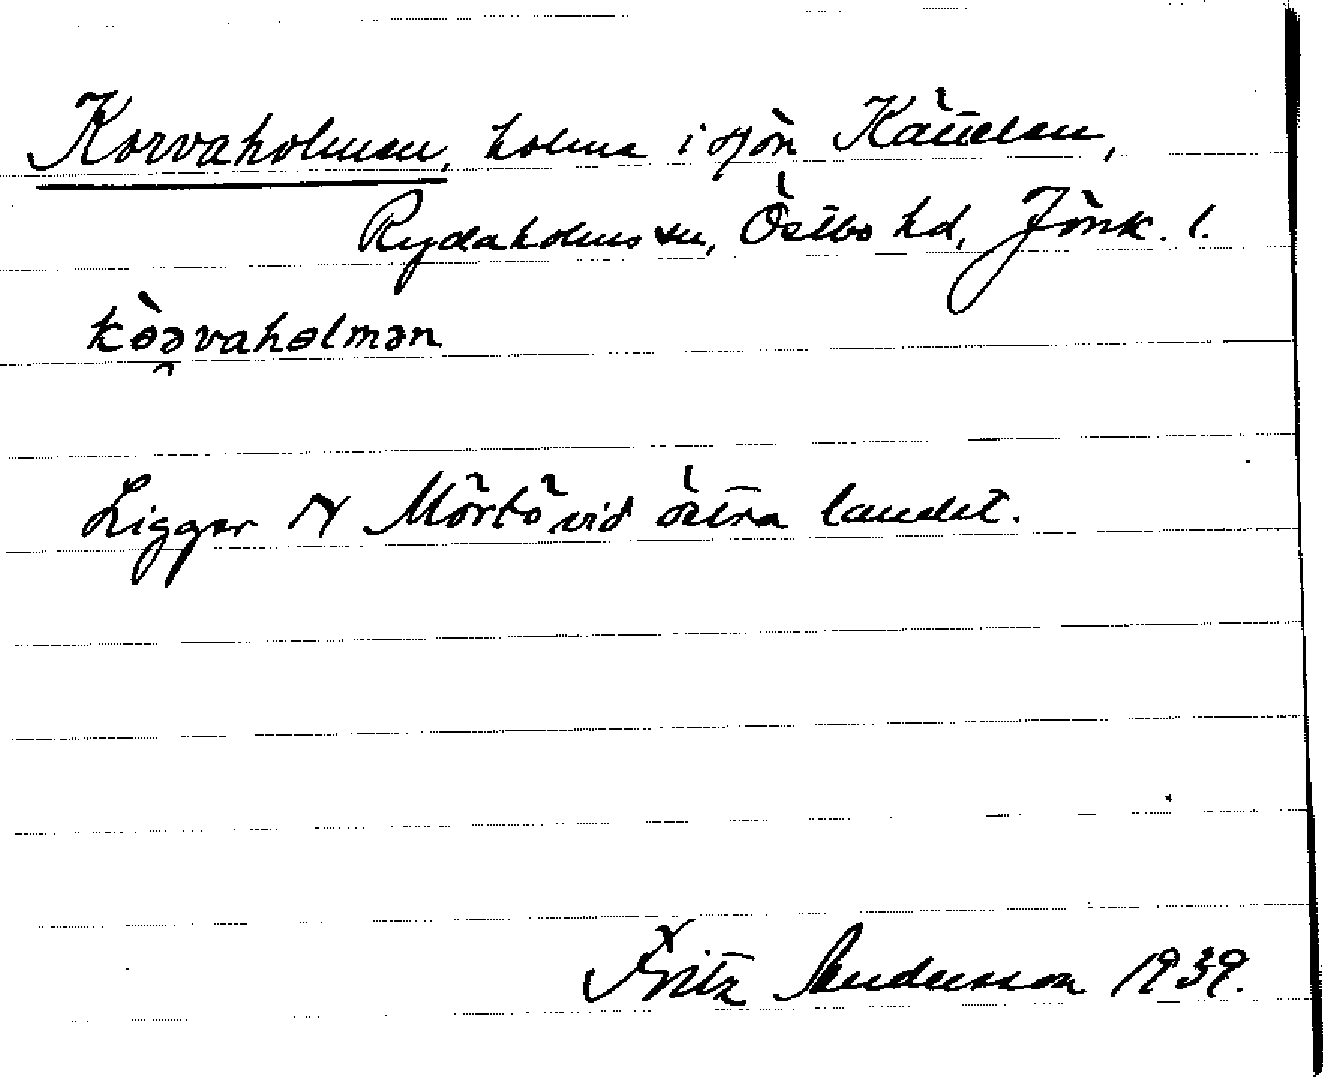 Korvaholmen, holme i sjön Kättelen,
Rydaholms sn, Östbo hd, Jönk. l.
kòə̯rvahɵlmən
Ligger N Mörtö vid östra landet.
Fritz Andersson 1939.